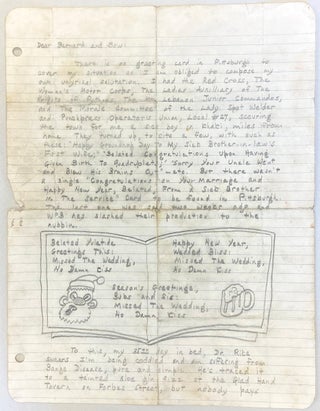 Dear Bernard and Bow:
There is no greeting card in Pittsburgh to
cover my situation so I am obliged to compose my
own salutation. I had the Red Cross, The
Women's Motor Corps, The Ladies Auxiliary of The
Knights of Pythias, The Mt. Lebanon Junior Commandos,
and The Morale Committee of the Lady Spot Welder
and Punchpress Operators Union, Local #27, scouring
the town for me, a sick boy in Khaki, miles from
home. They turned up, to cite a few, with such as
these: Happy Groundhog Day To My Sick Brother-in-law's
First Wife," "Belated Congratulations Upon Having
Given Birth To Quadruplets," "Sorry Your Uncle Went
and Blew His Brains Out," But there wasn't
a single "Congratulations on Your Marriage and
Happy New Year, Belated, From A Sick Brother
In The Service" Card to be found in Pittsburgh.
The last one was sold two weeks ago and
WPB has slashed their production to the
nubbin.
Belated Yuletide
Greetings This:
Missed The Wedding,
No Damn Kiss
Happy New Year,
Wedded Bliss:
Missed The Wedding,
No Damn Kiss
Season's Greetings,
Bubs and Sis:
Missed The Wedding,
No Damn Kiss
To this, my day in bed, Dr. Rite
swears I'm being coddled and am suffering from
Bangs Disease, pure and simple. He's traced it
to a tainted gin fizz at the Glad Hand
Tavern on Forbes Street, but nobody pays